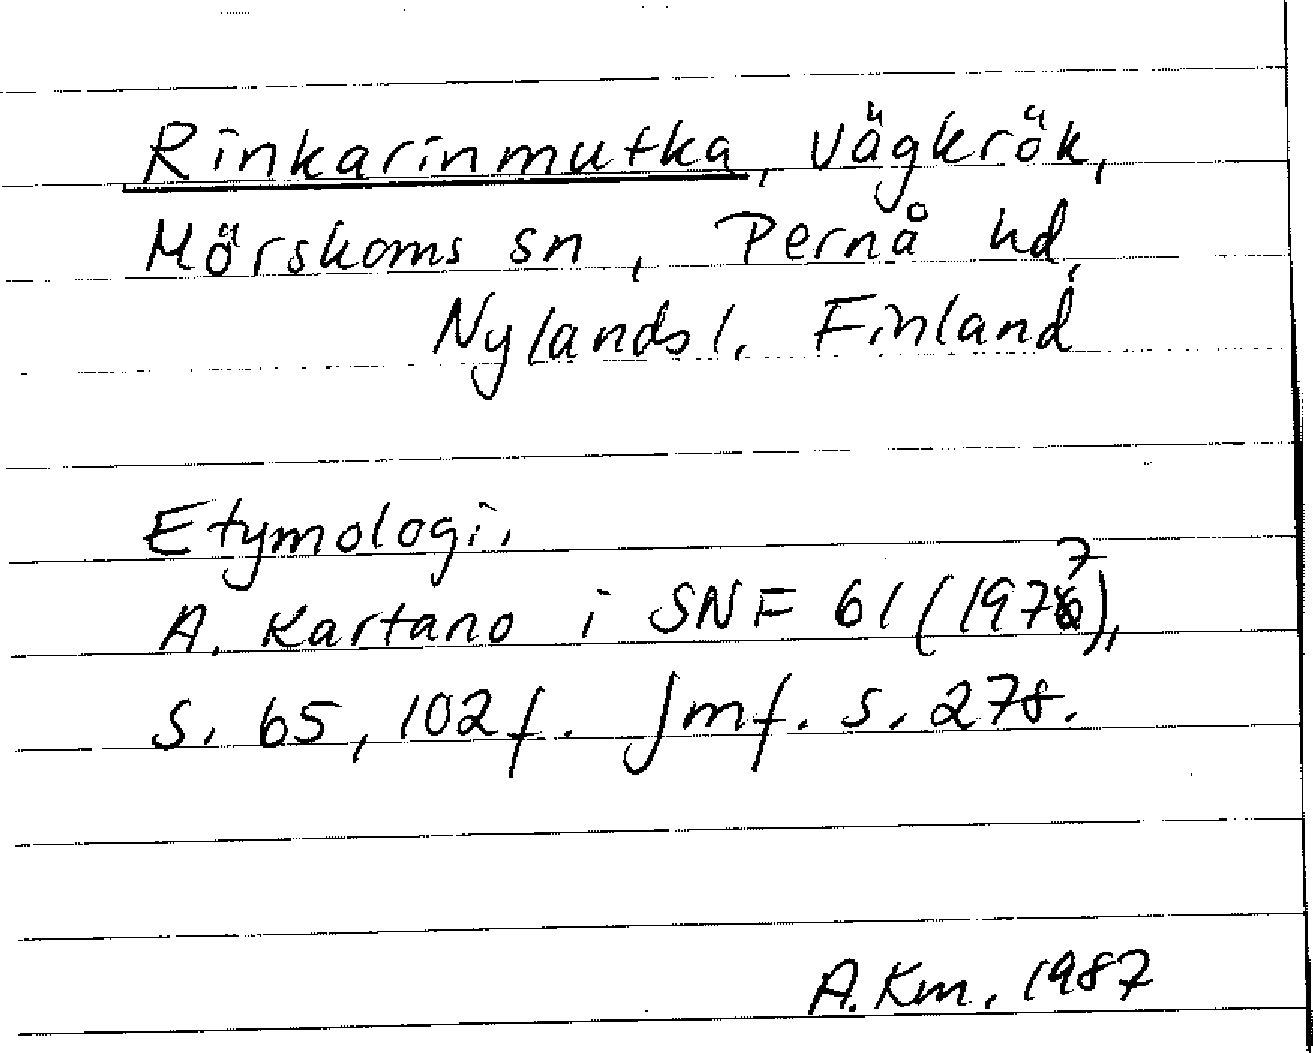 Rinkarinmutka, vägkrök,
Mörskoms sn, Pernå hd,
Nylands l. Finland
Etymologi.
A. Kartano i SNF 61 (1977),
s. 65, 102 f. Jmf. s. 278.
A. Km. 1987